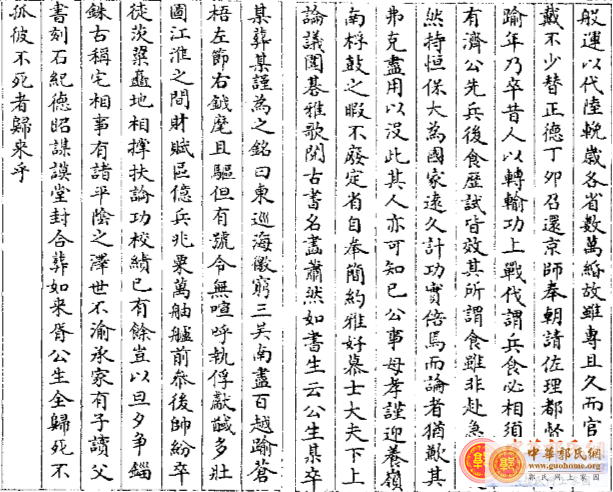 般運以代陸輓歲各省數萬緡故雖專且久而官
戴不少替正德丁夘召還京師奉朝請佐理都督
踰年乃卒昔人以轉輸功上戰伐謂兵食必相須
有濟公先兵後食歷試皆效其所謂食雖非赴急
然持恒保大為國家遠久計功實倍焉而論者猶歎其
弗克盡用以沒此其人亦可知已公事母孝謹迎養嶺
南桴鼓之暇不廢定省自奉簡約雅好慕士大夫下上
論議圍棊雅歌閱古書名畫蕭然如書生云公生某卒
某葬某謹為之銘曰東巡海徼窮三吳南盡百越踰蒼
梧左節右鉞麾且驅但有號令無喧呼執俘獻馘多壯
圖江淮之間財賦區億兵兆粟萬舳艫前叅後帥紛卒
徒茨粱矗地相撐扶論功校績已有餘豈以旦夕爭錙
銖古稱宅相事有諸平陰之澤世不渝承家有子讀父
書刻石紀德昭謀謨堂封合葬如來胥公生全歸死不
孤彼不死者歸來乎
中華郭氏網
www.guohome.org
郭氏網上家園